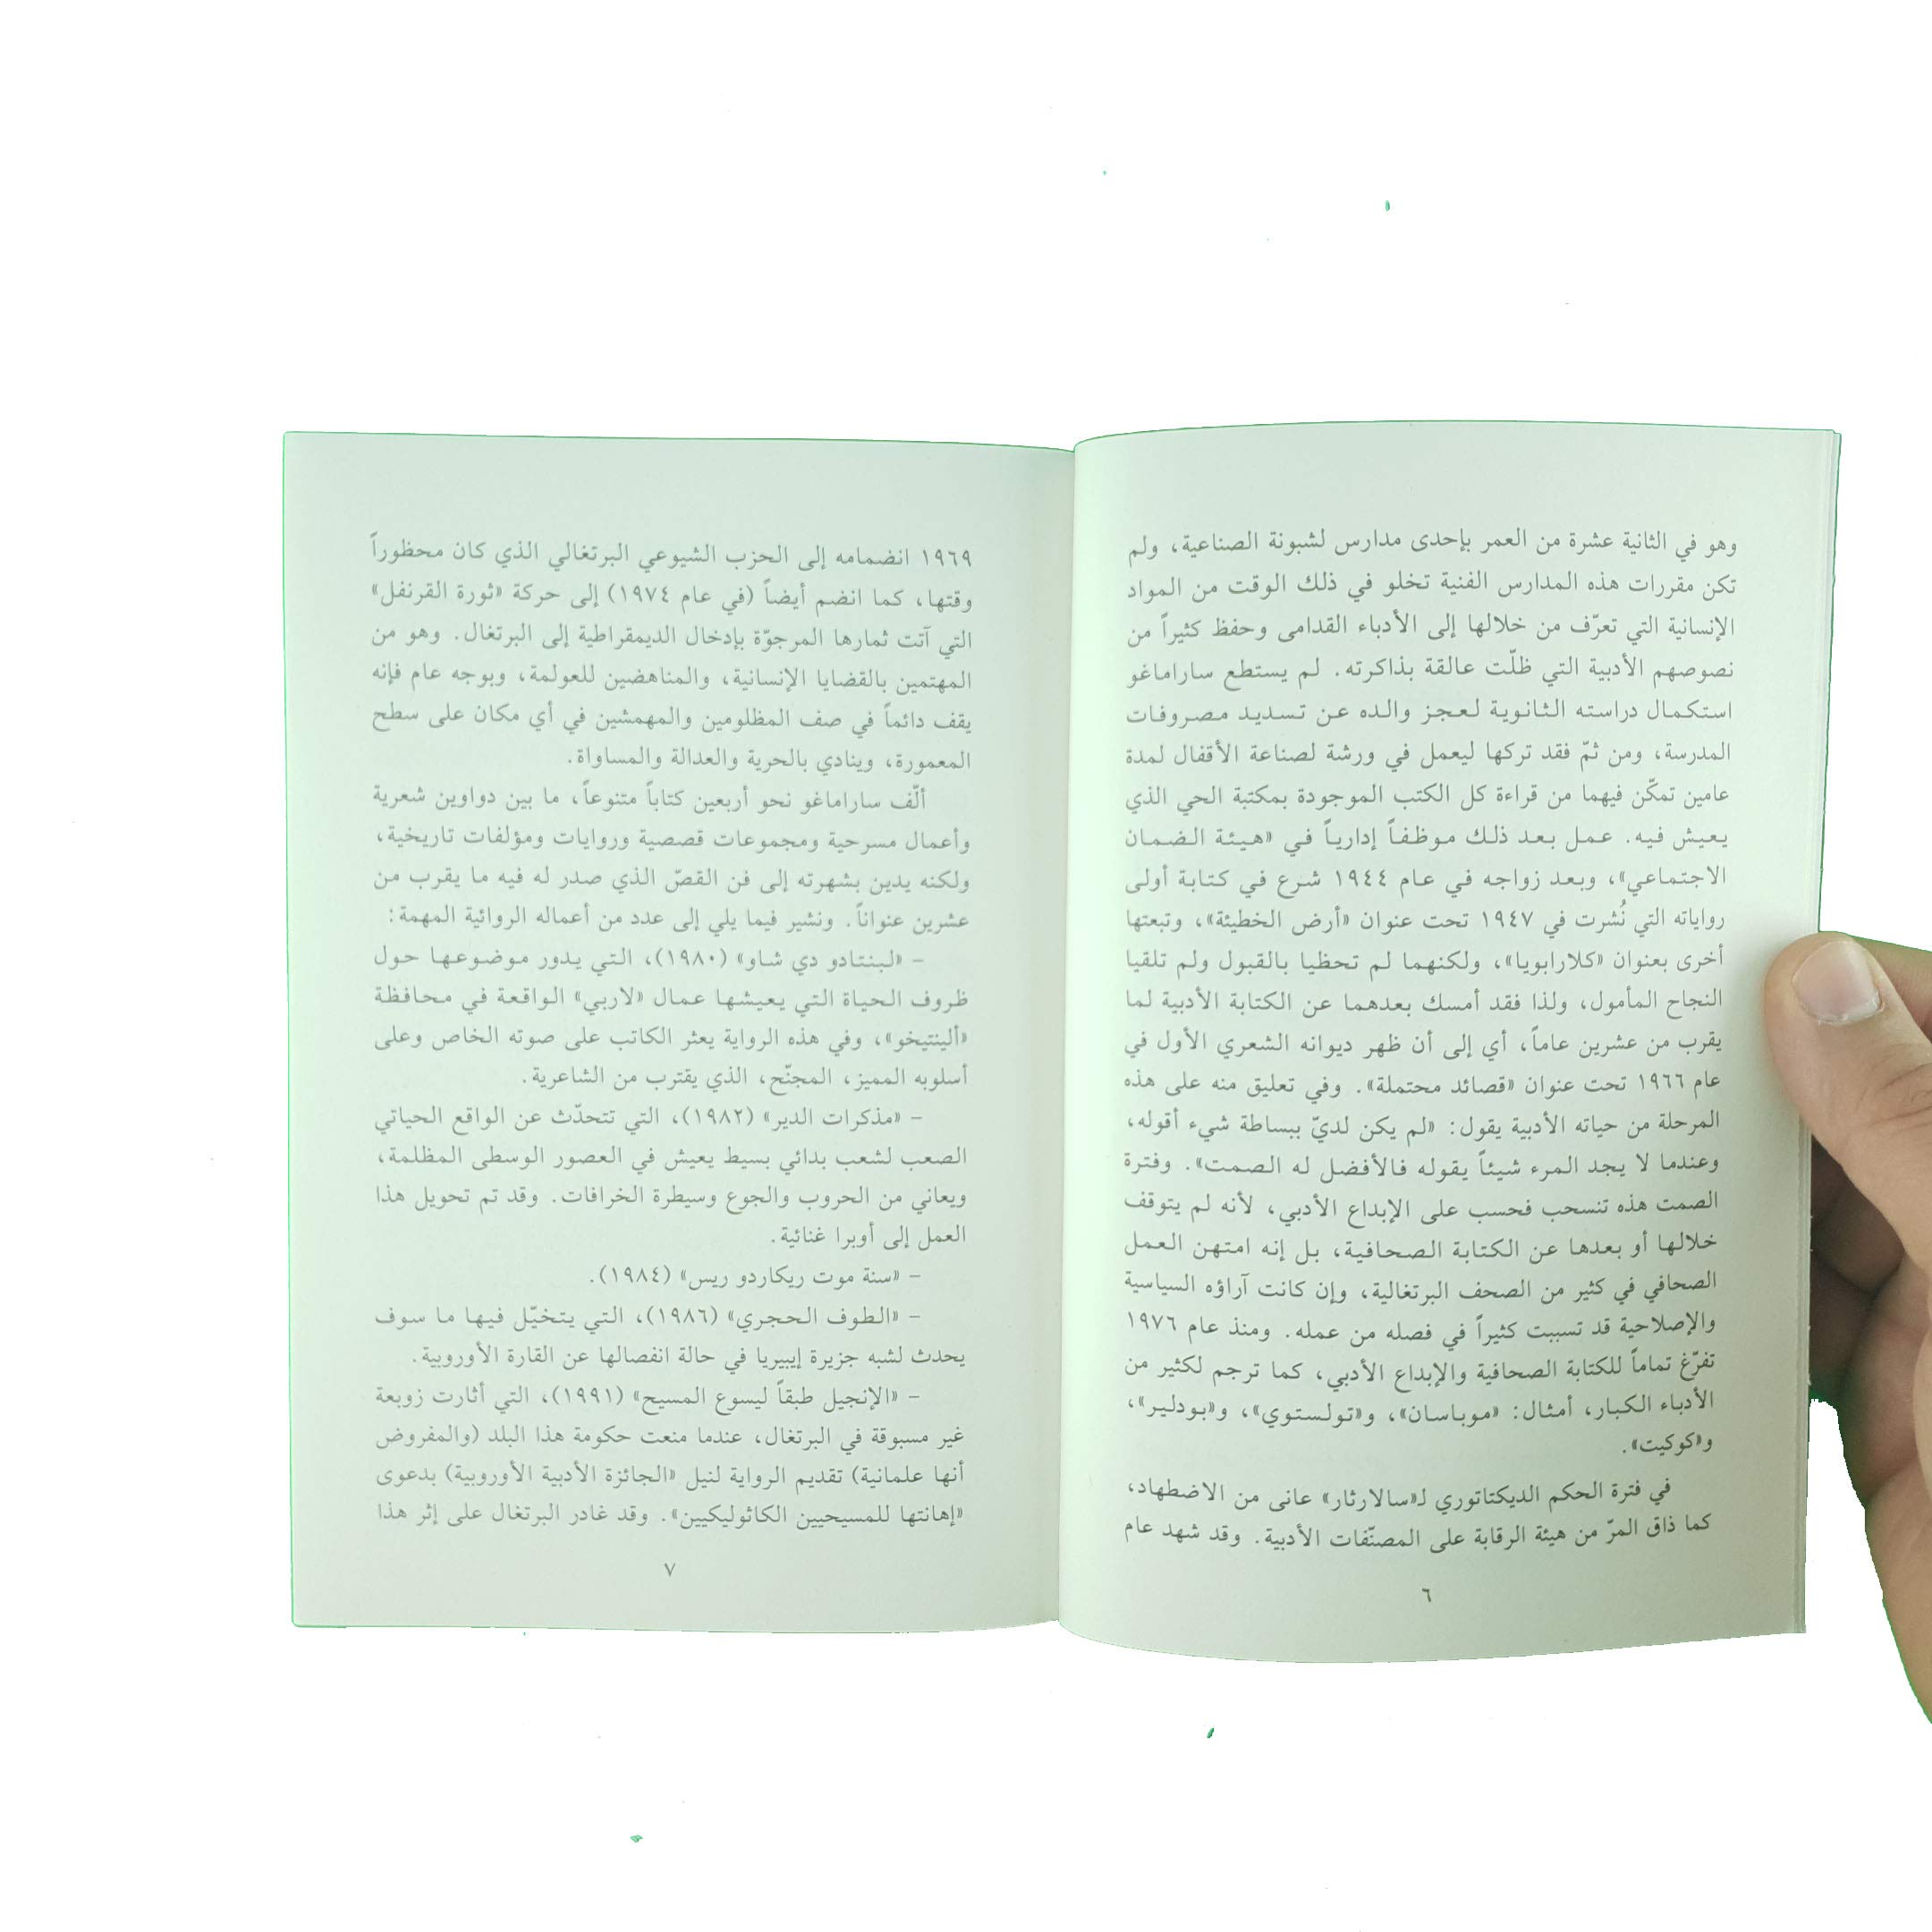 وهو في الثانية عشرة من العمر بإحدى مدارس لشبونة الصناعية، ولم
تكن مقررات هذه المدارس الفنية تخلو في ذلك الوقت من المواد
الإنسانية التي تعرّف من خلالها إلى الأدباء القدامى وحفظ كثيراً من
نصوصهم الأدبية التي ظلّت عالقة بذاكرته. لم يستطع ساراماغو
استكمال دراسته الثانوية لعجز والده عن تسديد مصروفات
المدرسة، ومن ثمّ فقد تركها ليعمل في ورشة لصناعة الأقفال لمدة
عامين تمكّن فيهما من قراءة كل الكتب الموجودة بمكتبة الحي الذي
يعيش فيه. عمل بعد ذلك موظفاً إدارياً في «هيئة الضمان
الاجتماعي»، وبعد زواجه في عام ١٩٤٤ شرع في كتابة أولى
رواياته التي نُشرت في ١٩٤٧ تحت عنوان «أرض الخطيئة»، وتبعتها
أخرى بعنوان «كلارابويا»، ولكنهما لم تحظيا بالقبول ولم تلقيا
النجاح المأمول، ولذا فقد أمسك بعدهما عن الكتابة الأدبية لما
يقرب من عشرين عاماً، أي إلى أن ظهر ديوانه الشعري الأول في
عام ١٩٦٦ تحت عنوان «قصائد محتملة». وفي تعليق منه على هذه
المرحلة من حياته الأدبية يقول: «لم يكن لديّ ببساطة شيء أقوله،
وعندما لا يجد المرء شيئاً يقوله فالأفضل له الصمت». وفترة
الصمت هذه تنسحب فحسب على الإبداع الأدبي، لأنه لم يتوقف
خلالها أو بعدها عن الكتابة الصحافية، بل إنه امتهن العمل
الصحافي في كثير من الصحف البرتغالية، وإن كانت آراؤه السياسية
والإصلاحية قد تسببت كثيراً في فصله من عمله. ومنذ عام ١٩٧٦
تفرّغ تماماً للكتابة الصحافية والإبداع الأدبي، كما ترجم لكثير من
الأدباء الكبار، أمثال: «موباسان»، و«تولستوي»، و«بودلير»،
و«كوكيت».
في فترة الحكم الديكتاتوري لـ«سالارثار» عانى من الاضطهاد،
كما ذاق المرّ من هيئة الرقابة على المصنّفات الأدبية. وقد شهد عام
٦
١٩٦٩ انضمامه إلى الحزب الشيوعي البرتغالي الذي كان محظوراً
وقتها، كما انضم أيضاً (في عام ١٩٧٤) إلى حركة «ثورة القرنفل»
التي آتت ثمارها المرجوّة بإدخال الديمقراطية إلى البرتغال. وهو من
المهتمين بالقضايا الإنسانية، والمناهضين للعولمة، وبوجه عام فإنه
يقف دائماً في صف المظلومين والمهمشين في أي مكان على سطح
المعمورة، وينادي بالحرية والعدالة والمساواة.
ألّف ساراماغو نحو أربعين كتاباً متنوعاً، ما بين دواوين شعرية
وأعمال مسرحية ومجموعات قصصية وروايات ومؤلفات تاريخية،
ولكنه يدين بشهرته إلى فن القصّ الذي صدر له فيه ما يقرب من
عشرين عنواناً. ونشير فيما يلي إلى عدد من أعماله الروائية المهمة:
- «لبنتادو دي شاو» (١٩٨٠)، التي يدور موضوعها حول
ظروف الحياة التي يعيشها عمال «لاربي» الواقعة في محافظة
«ألينتيخو»، وفي هذه الرواية يعثر الكاتب على صوته الخاص وعلى
أسلوبه المميز، المجنّح، الذي يقترب من الشاعرية.
- «مذكرات الدير» (١٩٨٢)، التي تتحدّث عن الواقع الحياتي
الصعب لشعب بدائي بسيط يعيش في العصور الوسطى المظلمة،
ويعاني من الحروب والجوع وسيطرة الخرافات. وقد تم تحويل هذا
العمل إلى أوبرا غنائية.
- «سنة موت ريكاردو ريس» (١٩٨٤).
- «الطوف الحجري» (١٩٨٦)، التي يتخيّل فيها ما سوف
يحدث لشبه جزيرة إيبيريا في حالة انفصالها عن القارة الأوروبية.
- «الإنجيل طبقاً ليسوع المسيح» (١٩٩١)، التي أثارت زوبعة
غير مسبوقة في البرتغال، عندما منعت حكومة هذا البلد (والمفروض
أنها علمانية) تقديم الرواية لنيل «الجائزة الأدبية الأوروبية» بدعوى
«إهانتها للمسيحيين الكاثوليكيين». وقد غادر البرتغال على إثر هذا
٧